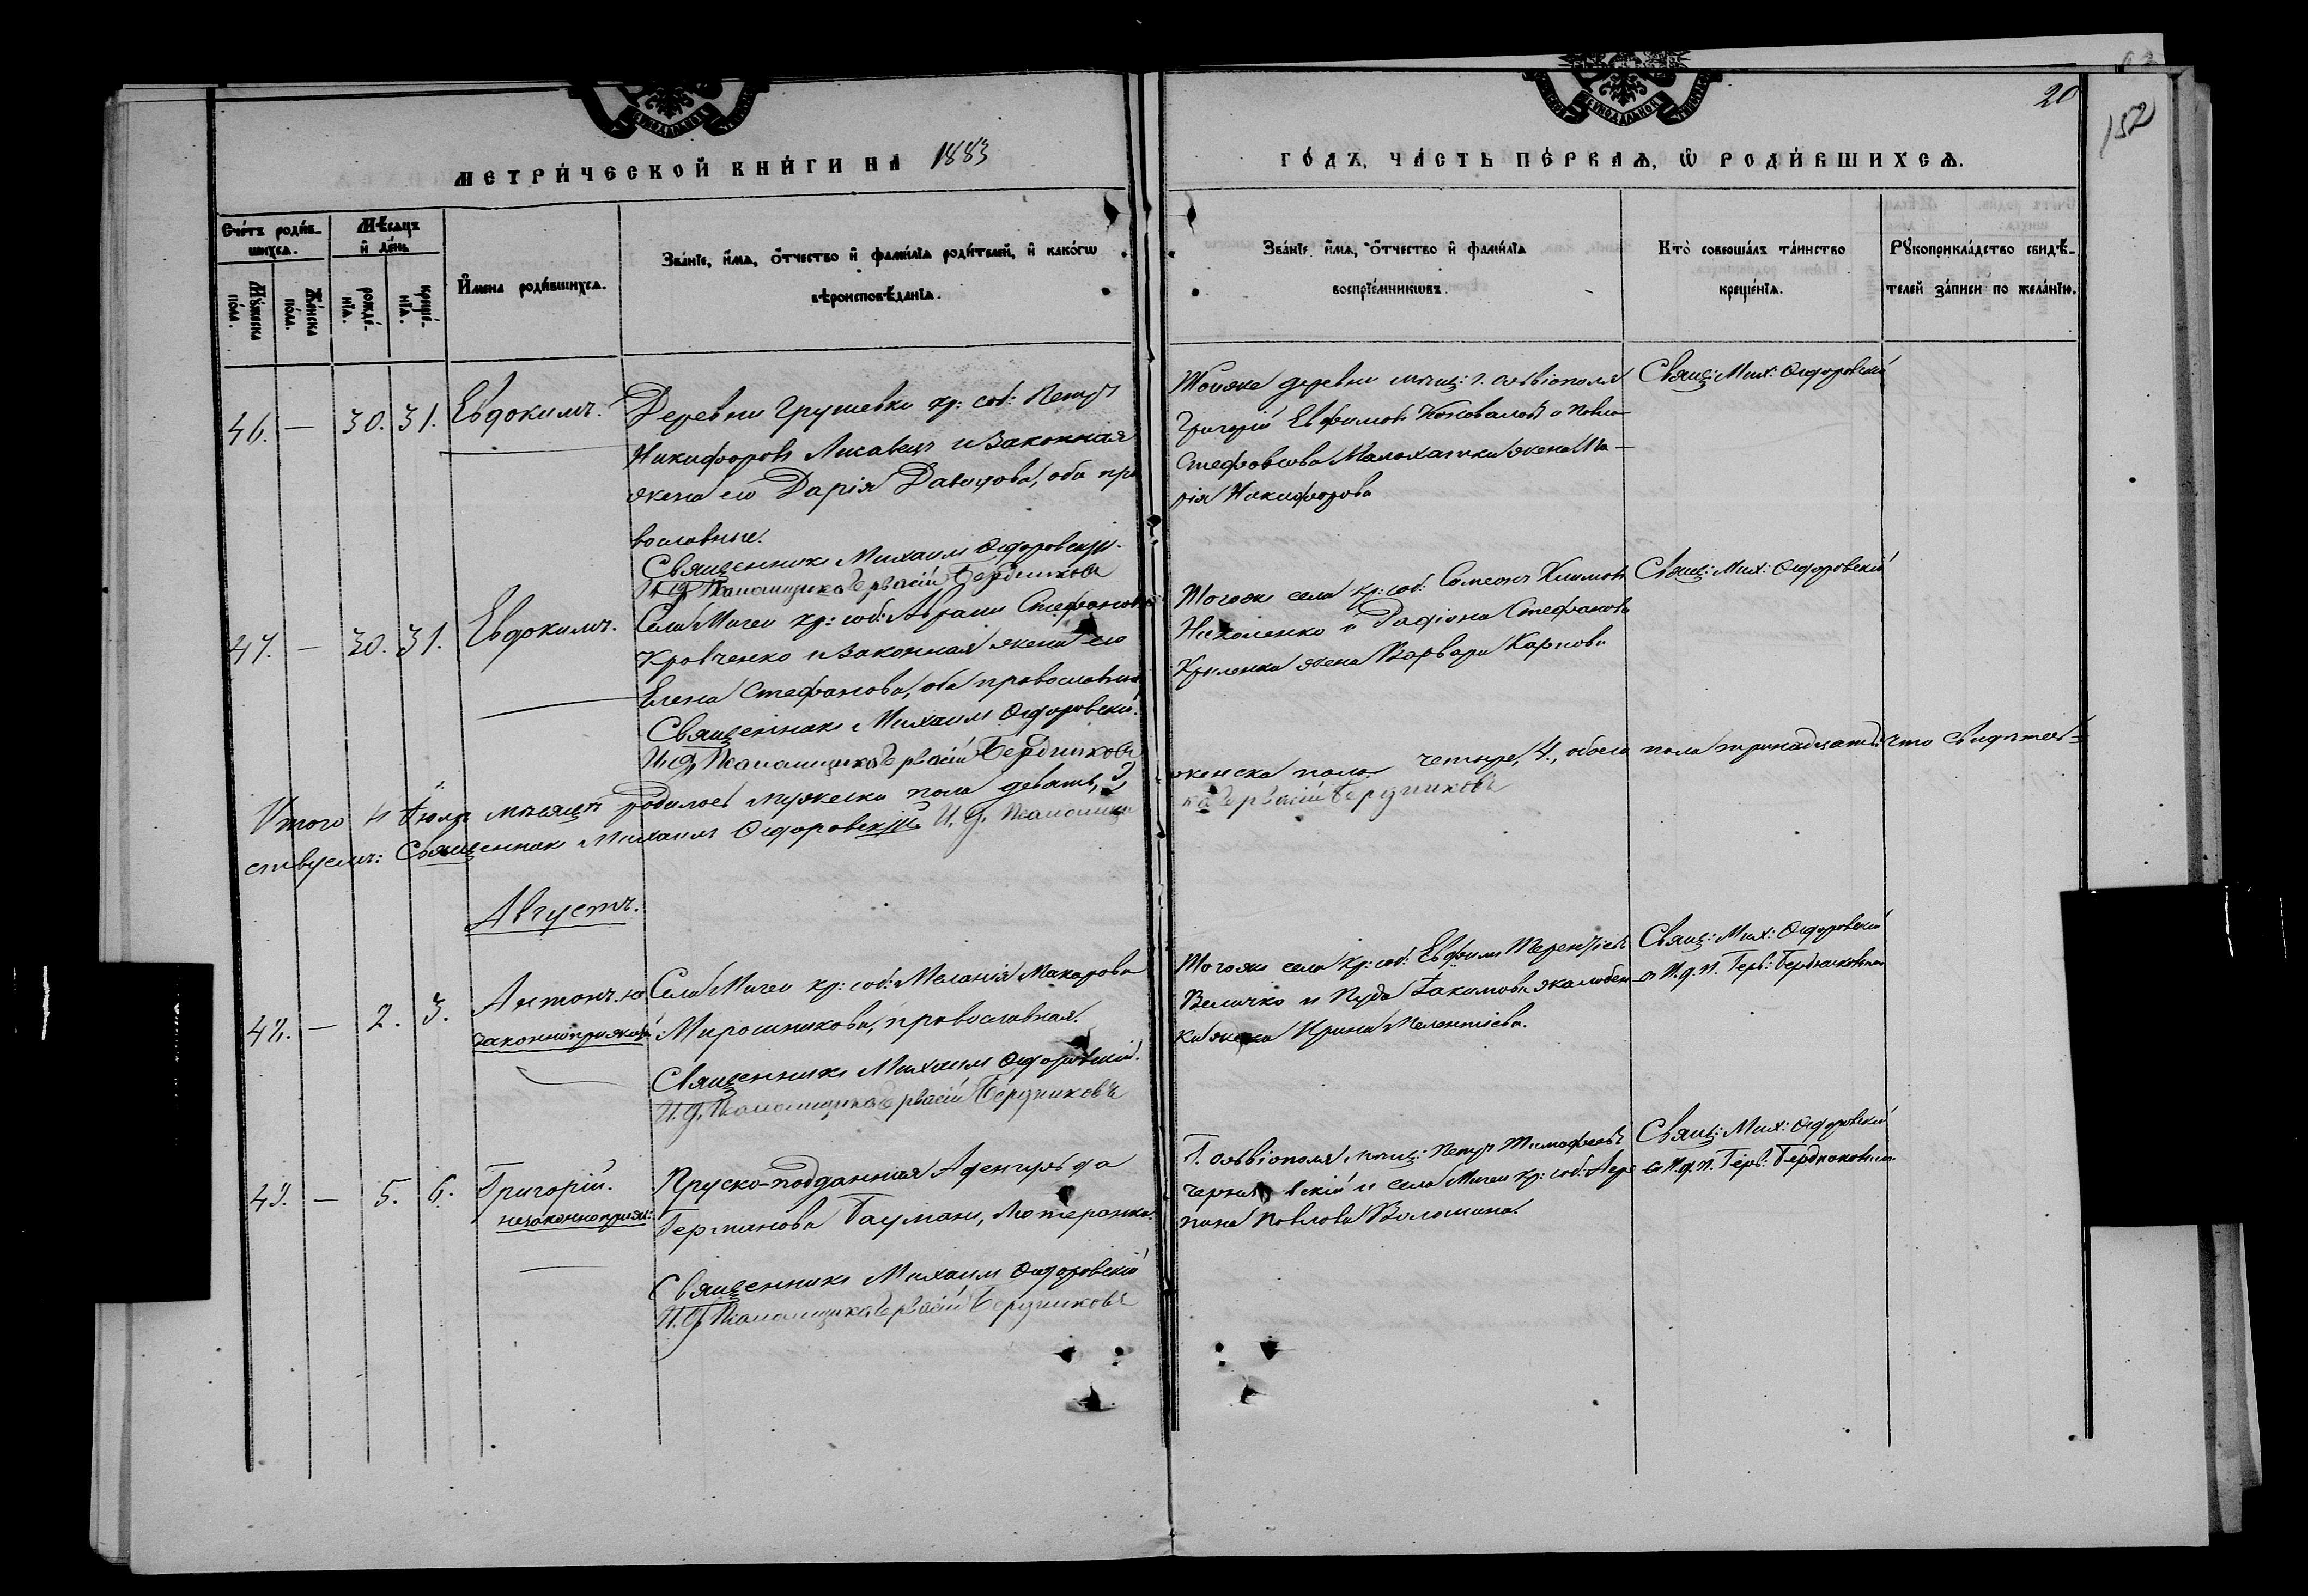 20
152
МЕТРИ́ЧЕСКОЙ КНИ́ГИ НА̀ 1883
ГО́ДЪ, ЧА́СТЬ ПЕ́РВАѦ, Ѿ РОДИ́ВШИХСѦ.
Сче́тъ роди́в-
шихсѧ.
Мѣ́сѧцъ
и҆ де́нь
Му́жеска
по́ла.
Же́нска
по́ла.
рожде́-
нїѧ.
креще́-
нїѧ.
И҆мена̀ роди́вшихсѧ.
Зва́нїе, и҆́мѧ, ѻ҆́тчество и҆ фами́лїѧ роди́телей, и҆ како́гѡ
вѣроисповѣ́данїѧ.
Зва́нїе, и҆́мѧ, ѻ҆́тчество и҆ фами́лїѧ
воспрїе́мникѡвъ.
Кто̀ соверша́лъ та́инство
креще́нїѧ.
Рꙋкоприкла́дство свидѣ́-
телей за́писи по жела́нїю.
46. — 30. 31. Евдокимъ.
Деревни Грушевки кр: соб: Петръ
Никифоровъ Лисавецъ и законная
жена его Дарія Давидова, оба пра
вославные.
Священникъ Михаилъ Ѳедоровскій.
И. д. Псаломщика Гервасій Бердниковъ
Тойже деревни мѣщ: г. Ольвіополя
Григорій Евфимовъ Коновалов и Павла
Стефовова Малохатки жена Ма-
рія Никифорова
Свящ: Мих: Ѳедоровскій
47. — 30. 31. Евдокимъ.
Села Мигеи кр: соб: Аврамъ Стефановъ
Кравченко и законная жена его
Елена Стефанова, оба православные
Священникъ Михаилъ Ѳедоровскій.
И. д. Псаломщика Гервасій Бердниковъ
Тогоже села кр: соб: Симеонъ Климовъ
Николенко и Радіона Стефанова
жена Варвара Карпова
Свящ: Мих: Ѳедоровскій
Итого въ Іюлѣ мѣсяцѣ родилось мужеска пола девять, 9,
женска пола четыре, 4., обоего пола тринадцать: что свидѣтель-
ствуемъ: Священникъ Михаилъ Ѳедоровскій И. д. Псаломщи
ка Гервасій Бердниковъ
Августъ.
48. — 2. 3. Антонъ.
Села Мигеи кр: соб: Меланія Макарова
Мирошникова, православная.
Священникъ Михаилъ Ѳедоровскій.
И. д. Псаломщика Гервасій Бердниковъ
Тогоже села кр: соб: Евфимъ Терентіевъ
Величко и Іакимова
жена Ирина Мелентіева.
Свящ: Мих: Ѳедоровскій
съ И. д. П. Герв: Бердниковым
49. — 5. 6. Григорій.
незаконноприж:
Пруско-подданная
Германова Бауманъ, лютеранка.
Священникъ Михаилъ Ѳедоровскій
И. д. Псаломщика Гервасій Бердниковъ
Г. Ольвіополя мѣщ: Петръ Тимофеевъ
и села Мигеи кр: соб: Агре
пина Павлова Волошина.
Свящ: Мих: Ѳедоровскій
съ И. д. П. Герв: Бердниковым